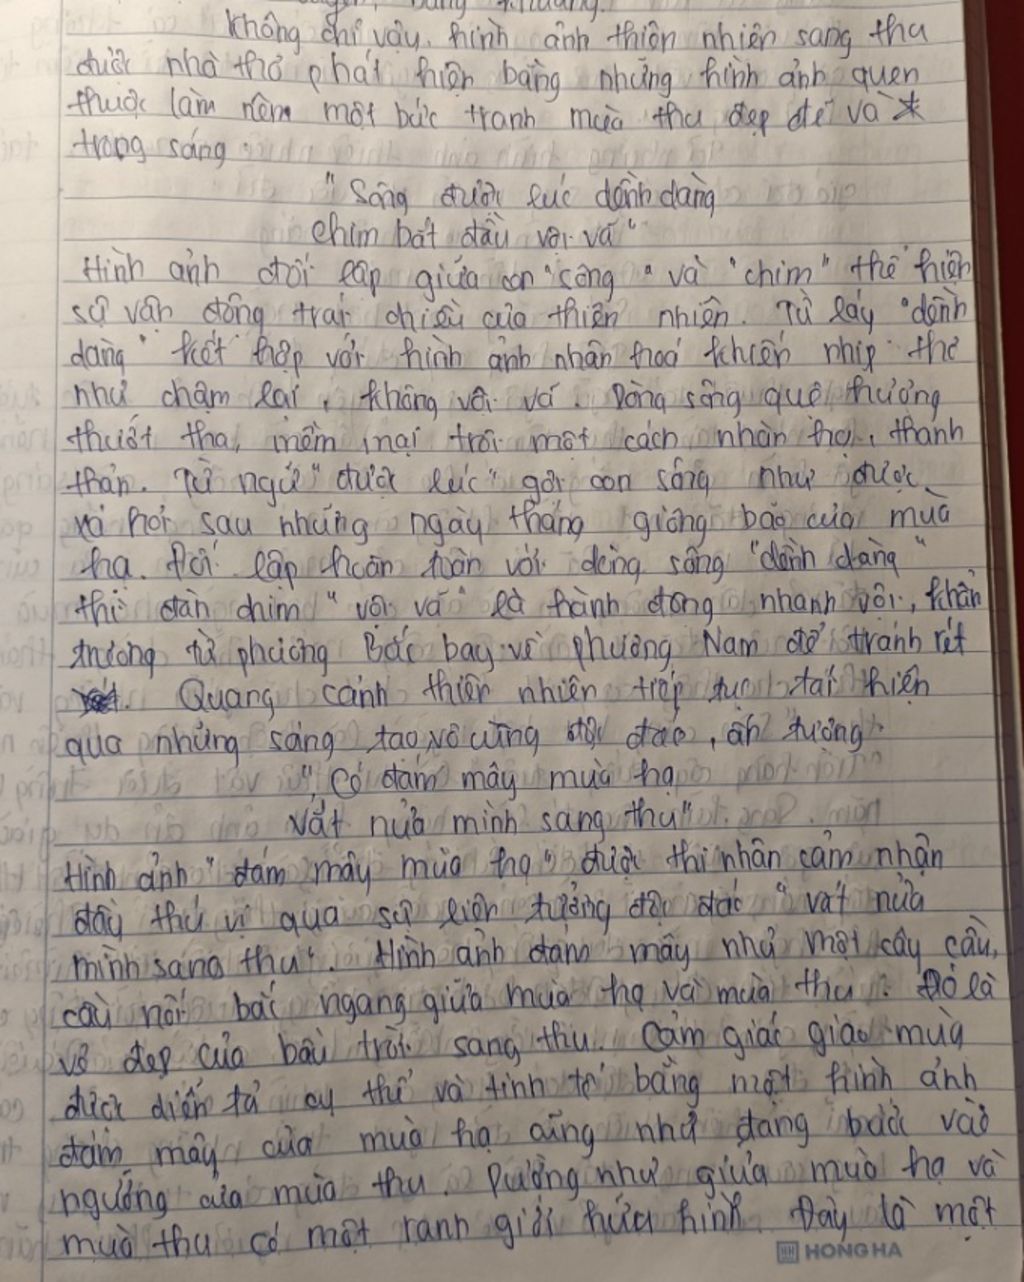 Không chỉ vậy, hình ảnh thiên nhiên sang thu
được nhà thơ phát hiện bằng những hình ảnh quen
thuộc làm nên một bức tranh mùa thu đẹp đẽ và
trong sáng:
"Sông được lúc dềnh dàng
Chim bắt đầu vội vã"
Hình ảnh đối lập giữa con "sông" và "chim" thể hiện
sự vận động trái chiều của thiên nhiên. Từ láy "dềnh
dàng" kết hợp với hình ảnh nhân hoá khiến nhịp thơ
như chậm lại, không vội vã. Dòng sông quê hương
thướt tha, mềm mại trôi một cách nhàn hạ, thanh
thản. Từ ngữ "được lúc" gợi con sông như được
xả hơi sau những ngày tháng giông bão của mùa
hạ. Đối lập hoàn toàn với dòng sông "dềnh dàng"
thì đàn chim "vội vã" là hành động nhanh vội, khẩn
trương từ phương Bắc bay về phương Nam để tránh rét
Quang cảnh thiên nhiên tiếp tục tái hiện
qua những sáng tạo vô cùng độc đáo, ấn tượng:
"Có đám mây mùa hạ
Vắt nửa mình sang thu".
Hình ảnh "đám mây mùa hạ" được thi nhân cảm nhận
đầy thú vị qua sự liên tưởng độc đáo "vắt nửa
mình sang thu". Hình ảnh đám mây như một cây cầu,
cầu nối bắc ngang giữa mùa hạ và mùa thu. Đó là
vẻ đẹp của bầu trời sang thu. Cảm giác giao mùa
được diễn tả cụ thể và tinh tế bằng một hình ảnh
đám mây của mùa hạ cũng như đang bước vào
ngưỡng của mùa thu. Dường như giữa mùa hạ và
mùa thu có một ranh giới hữu hình. Đây là một
HONG HA